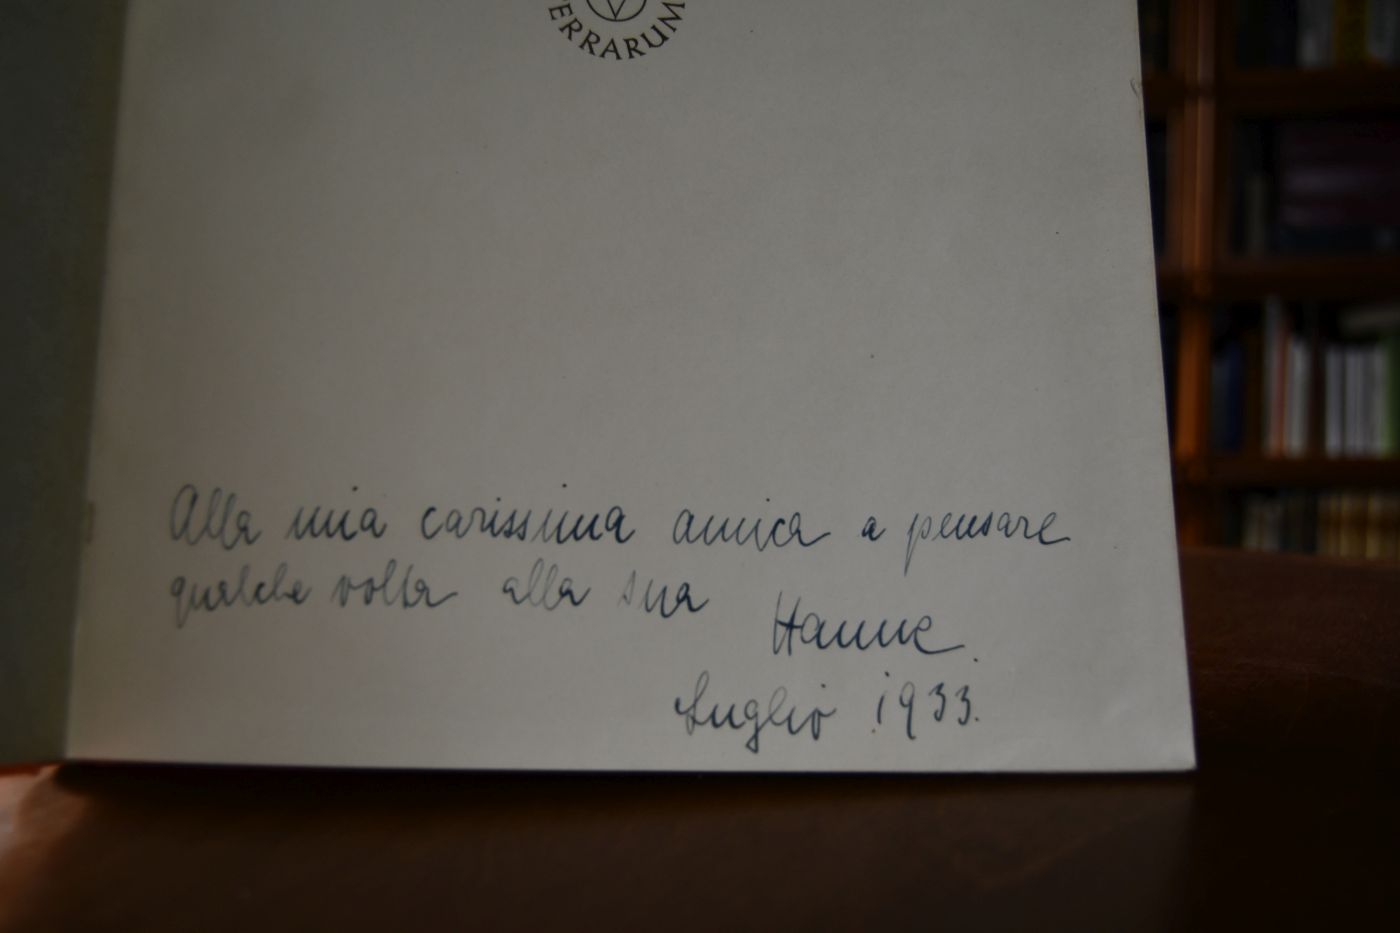 ERRARUM
Alla mia carissima amica a pensare
qualche volta alla sua
Hanne.
Luglio 1933.